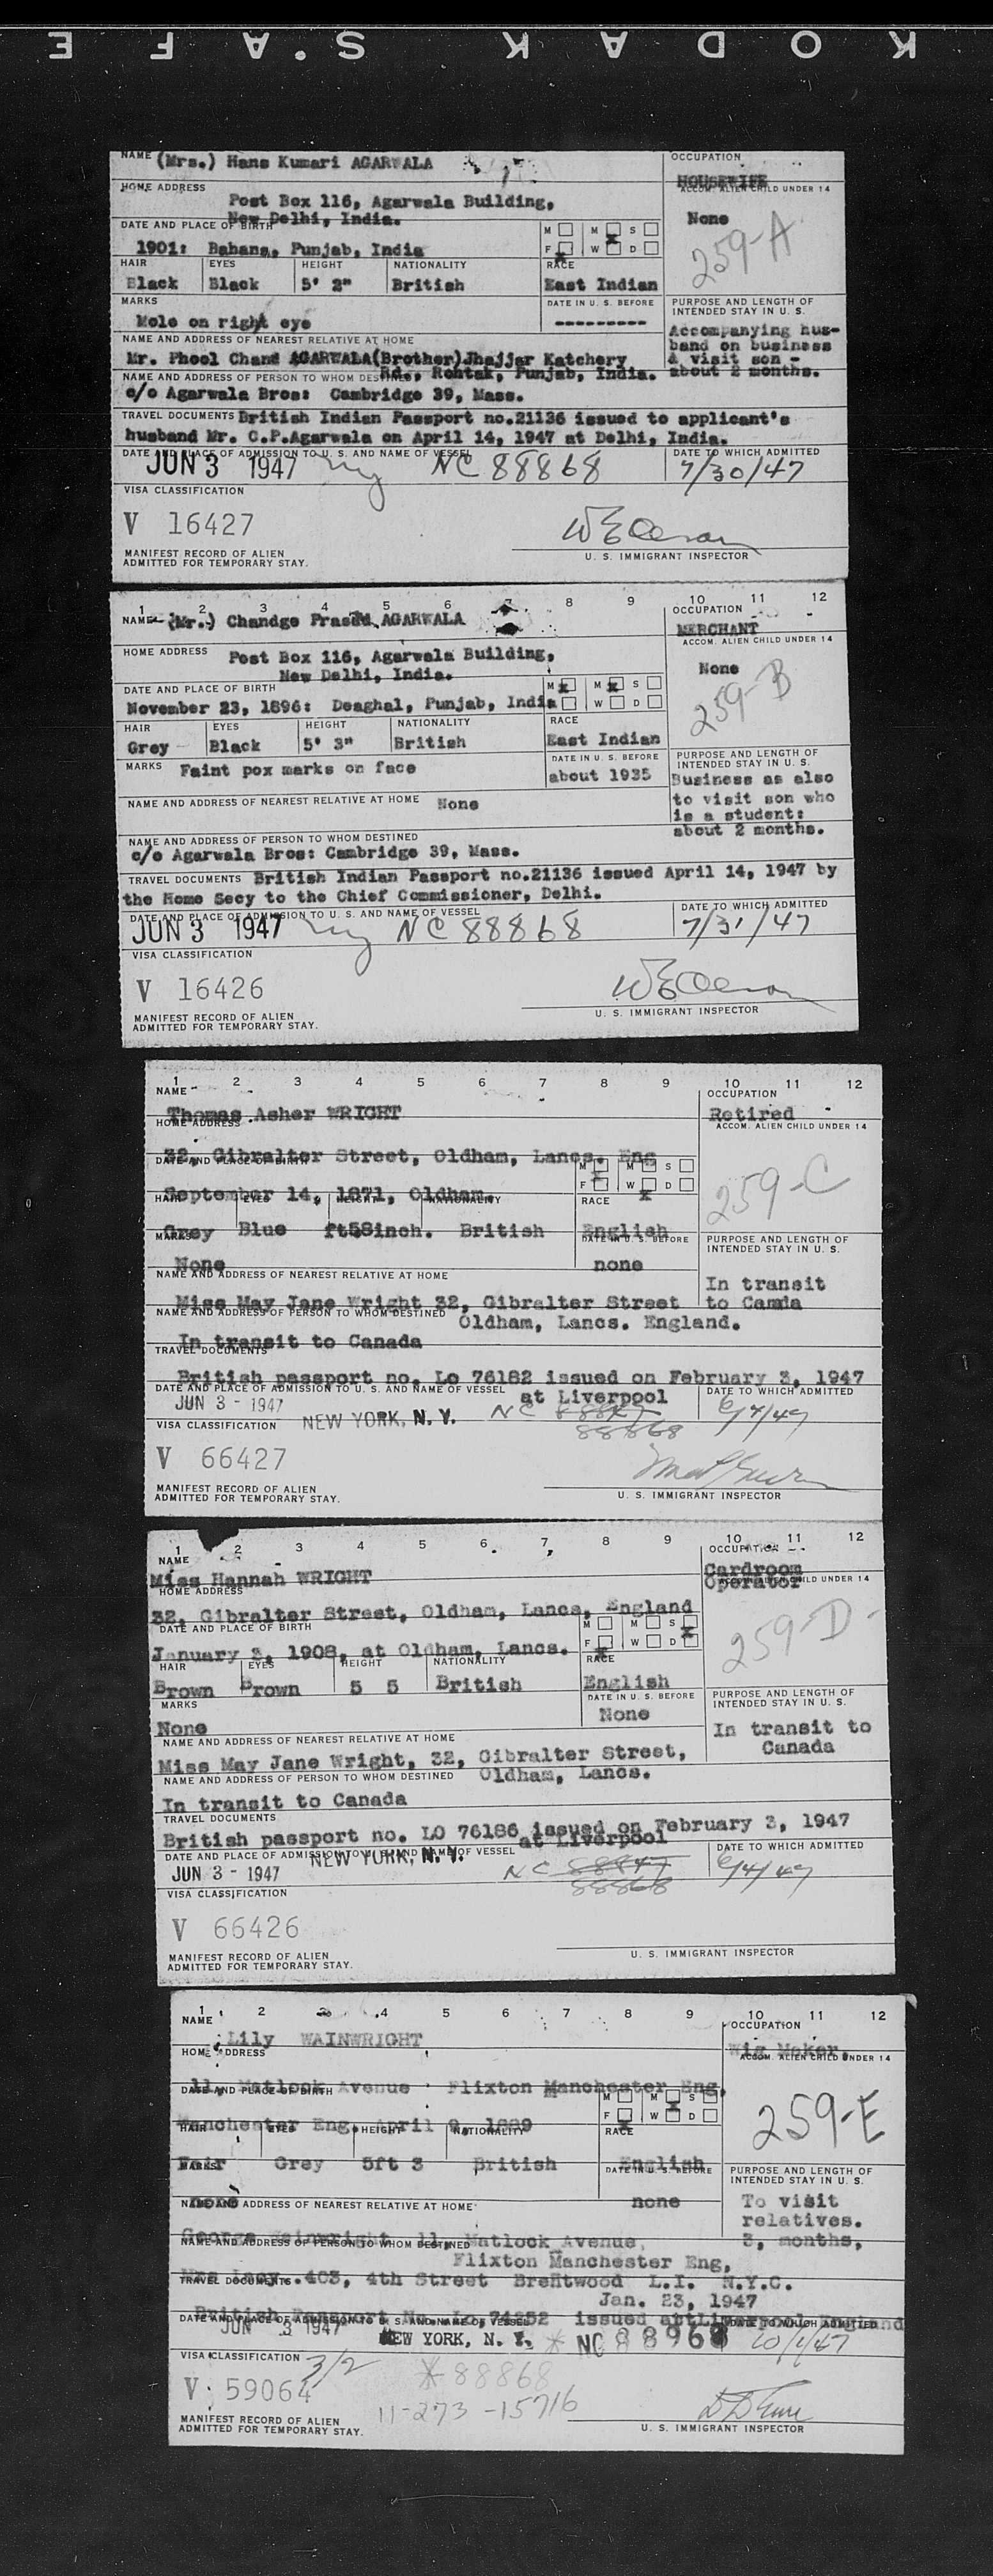 KODAK S.AFE
NAME (Mrs.) Hans Kumari AGARWALA
OCCUPATION
HOUSEWIFE
HOME ADDRESS
ACCOM. ALIEN CHILD UNDER 14
Post Box 116, Agarwala Building,
New Delhi, India.
None
DATE AND PLACE OF BIRTH
M M S
F W D
259-A
1901: Bahana, Punjab, India
HAIR EYES HEIGHT NATIONALITY RACE
Black Black 5' 2" British East Indian
MARKS
DATE IN U. S. BEFORE
PURPOSE AND LENGTH OF
INTENDED STAY IN U. S.
Mole on right eye
---------
NAME AND ADDRESS OF NEAREST RELATIVE AT HOME
Accompanying hus-
band on business
& visit son -
about 2 months.
Mr. Phool Chand AGARWALA(Brother)Jhajjar Katchery
Rd., Rohtak, Punjab, India.
NAME AND ADDRESS OF PERSON TO WHOM DESTINED
c/o Agarwala Bros: Cambridge 39, Mass.
TRAVEL DOCUMENTS British Indian Passport no.21136 issued to applicant's
husband Mr. C.P.Agarwala on April 14, 1947 at Delhi, India.
DATE AND PLACE OF ADMISSION TO U. S. AND NAME OF VESSEL
DATE TO WHICH ADMITTED
JUN 3 1947 ny NC 88868 7/30/47
VISA CLASSIFICATION
V 16427
MANIFEST RECORD OF ALIEN
ADMITTED FOR TEMPORARY STAY.
U. S. IMMIGRANT INSPECTOR
1 2 3 4 5 6 7 8 9 10 11 12
NAME (Mr.) Chandge Prasad AGARWALA
OCCUPATION
MERCHANT
HOME ADDRESS Post Box 116, Agarwala Building,
New Delhi, India.
ACCOM. ALIEN CHILD UNDER 14
None
DATE AND PLACE OF BIRTH
M M S
F W D
259-B
November 23, 1896: Deaghal, Punjab, India
HAIR EYES HEIGHT NATIONALITY RACE
Grey Black 5' 3" British East Indian
MARKS Faint pox marks on face
DATE IN U. S. BEFORE
about 1935
PURPOSE AND LENGTH OF
INTENDED STAY IN U. S.
Business as also
to visit son who
is a student:
about 2 months.
NAME AND ADDRESS OF NEAREST RELATIVE AT HOME None
NAME AND ADDRESS OF PERSON TO WHOM DESTINED
c/o Agarwala Bros: Cambridge 39, Mass.
TRAVEL DOCUMENTS British Indian Passport no.21136 issued April 14, 1947 by
the Home Secy to the Chief Commissioner, Delhi.
DATE AND PLACE OF ADMISSION TO U. S. AND NAME OF VESSEL
DATE TO WHICH ADMITTED
JUN 3 1947 ny NC 88868 7/31/47
VISA CLASSIFICATION
V 16426
MANIFEST RECORD OF ALIEN
ADMITTED FOR TEMPORARY STAY.
U. S. IMMIGRANT INSPECTOR
1 2 3 4 5 6 7 8 9 10 11 12
NAME
OCCUPATION
Thomas Asher WRIGHT
Retired
HOME ADDRESS
ACCOM. ALIEN CHILD UNDER 14
32, Gibralter Street, Oldham, Lancs. Eng
DATE AND PLACE OF BIRTH
M M S
F W D
259-C
September 14, 1871, Oldham
HAIR EYES HEIGHT NATIONALITY RACE
Grey Blue ft58inch. British English
MARKS
DATE IN U. S. BEFORE
PURPOSE AND LENGTH OF
INTENDED STAY IN U. S.
None
none
NAME AND ADDRESS OF NEAREST RELATIVE AT HOME
In transit
to Camda
Miss May Jane Wright 32, Gibralter Street
Oldham, Lancs. England.
NAME AND ADDRESS OF PERSON TO WHOM DESTINED
In transit to Canada
TRAVEL DOCUMENTS
British passport no. Lo 76182 issued on February 3, 1947
at Liverpool
DATE AND PLACE OF ADMISSION TO U. S. AND NAME OF VESSEL
DATE TO WHICH ADMITTED
JUN 3 - 1947 NEW YORK, N. Y. NC 88868 6/4/47
VISA CLASSIFICATION
V 66427
MANIFEST RECORD OF ALIEN
ADMITTED FOR TEMPORARY STAY.
U. S. IMMIGRANT INSPECTOR
1 2 3 4 5 6 7 8 9 10 11 12
NAME
OCCUPATION
Miss Hannah WRIGHT
Cardroom
Operator
HOME ADDRESS
ACCOM. ALIEN CHILD UNDER 14
32, Gibralter Street, Oldham, Lancs, England
DATE AND PLACE OF BIRTH
M M S
F W D
259-D
January 3, 1908, at Oldham, Lancs.
HAIR EYES HEIGHT NATIONALITY RACE
Brown Brown 5 5 British English
MARKS
DATE IN U. S. BEFORE
PURPOSE AND LENGTH OF
INTENDED STAY IN U. S.
None
None
In transit to
Canada
NAME AND ADDRESS OF NEAREST RELATIVE AT HOME
Miss May Jane Wright, 32, Gibralter Street,
Oldham, Lancs.
NAME AND ADDRESS OF PERSON TO WHOM DESTINED
In transit to Canada
TRAVEL DOCUMENTS
British passport no. LO 76186 issued on February 3, 1947
at Liverpool
DATE AND PLACE OF ADMISSION TO U. S. AND NAME OF VESSEL
DATE TO WHICH ADMITTED
JUN 3 - 1947 NEW YORK, N. Y. NC 88847 6/4/47
88868
VISA CLASSIFICATION
V 66426
MANIFEST RECORD OF ALIEN
ADMITTED FOR TEMPORARY STAY.
U. S. IMMIGRANT INSPECTOR
1 2 3 4 5 6 7 8 9 10 11 12
NAME
OCCUPATION
Lily WAINWRIGHT
Wig Maker.
HOME ADDRESS
ACCOM. ALIEN CHILD UNDER 14
11, Matlock Avenue Flixton Manchester Eng,
DATE AND PLACE OF BIRTH
M M S
F W D
259-E
Manchester Eng. April 9, 1889
HAIR EYES HEIGHT NATIONALITY RACE
Fair Grey 5ft 3 British English
MARKS
DATE IN U. S. BEFORE
PURPOSE AND LENGTH OF
INTENDED STAY IN U. S.
none
none
To visit
relatives.
3, months,
NAME AND ADDRESS OF NEAREST RELATIVE AT HOME
George Wainwright 11, Matlock Avenue,
Flixton Manchester Eng,
NAME AND ADDRESS OF PERSON TO WHOM DESTINED
Mrs 403, 4th Street Brentwood L.I. N.Y.C.
TRAVEL DOCUMENTS
Jan. 23, 1947
British Passport No. issued at Liverpool England
DATE AND PLACE OF ADMISSION TO U. S. AND NAME OF VESSEL
DATE TO WHICH ADMITTED
JUN 3 1947 NEW YORK, N. Y. * NC 88968 10/1/47
VISA CLASSIFICATION 3/2
* 88868
V 59064
11-273-15716
MANIFEST RECORD OF ALIEN
ADMITTED FOR TEMPORARY STAY.
U. S. IMMIGRANT INSPECTOR